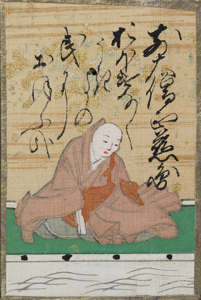 前大僧正慈圓
おほけなく
うき世の
民に
おほふ哉